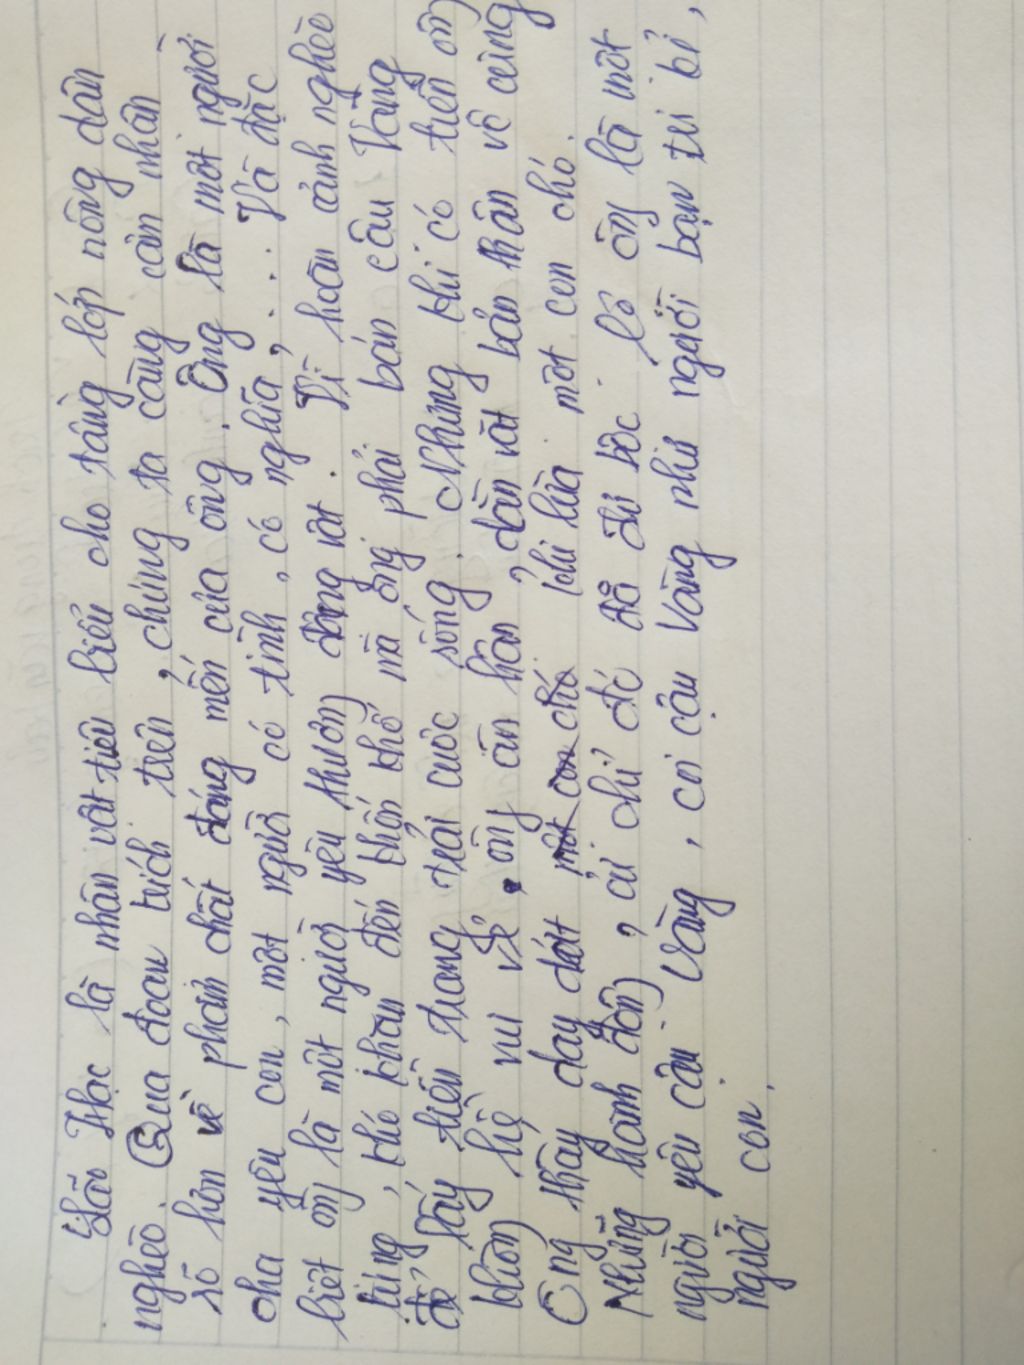 Lão Hạc là nhân vật tiêu biểu cho tầng lớp nông dân
nghèo. Qua đoạn trích trên, chúng ta càng cảm nhận
rõ hơn về phẩm chất đáng mến của ông. Ông là một người
cha yêu con, một người có tình, có nghĩa,... Và đặc
biệt ông là một người yêu thương động vật. Vì hoàn cảnh nghèo
túng, khó khăn đến khốn khổ mà ông phải bán cậu Vàng
để lấy tiền trang trải cuộc sống. Nhưng khi có tiền ông
không hề vui vẻ, ông ăn hận, dằn vặt bản thân vô cùng
Ông thấy day dứt khi lừa một con chó.
Những hành động, cử chỉ đó đã đủ bộc lộ ông là một
người yêu cậu Vàng, coi cậu Vàng như người bạn tri kỉ,
người con.